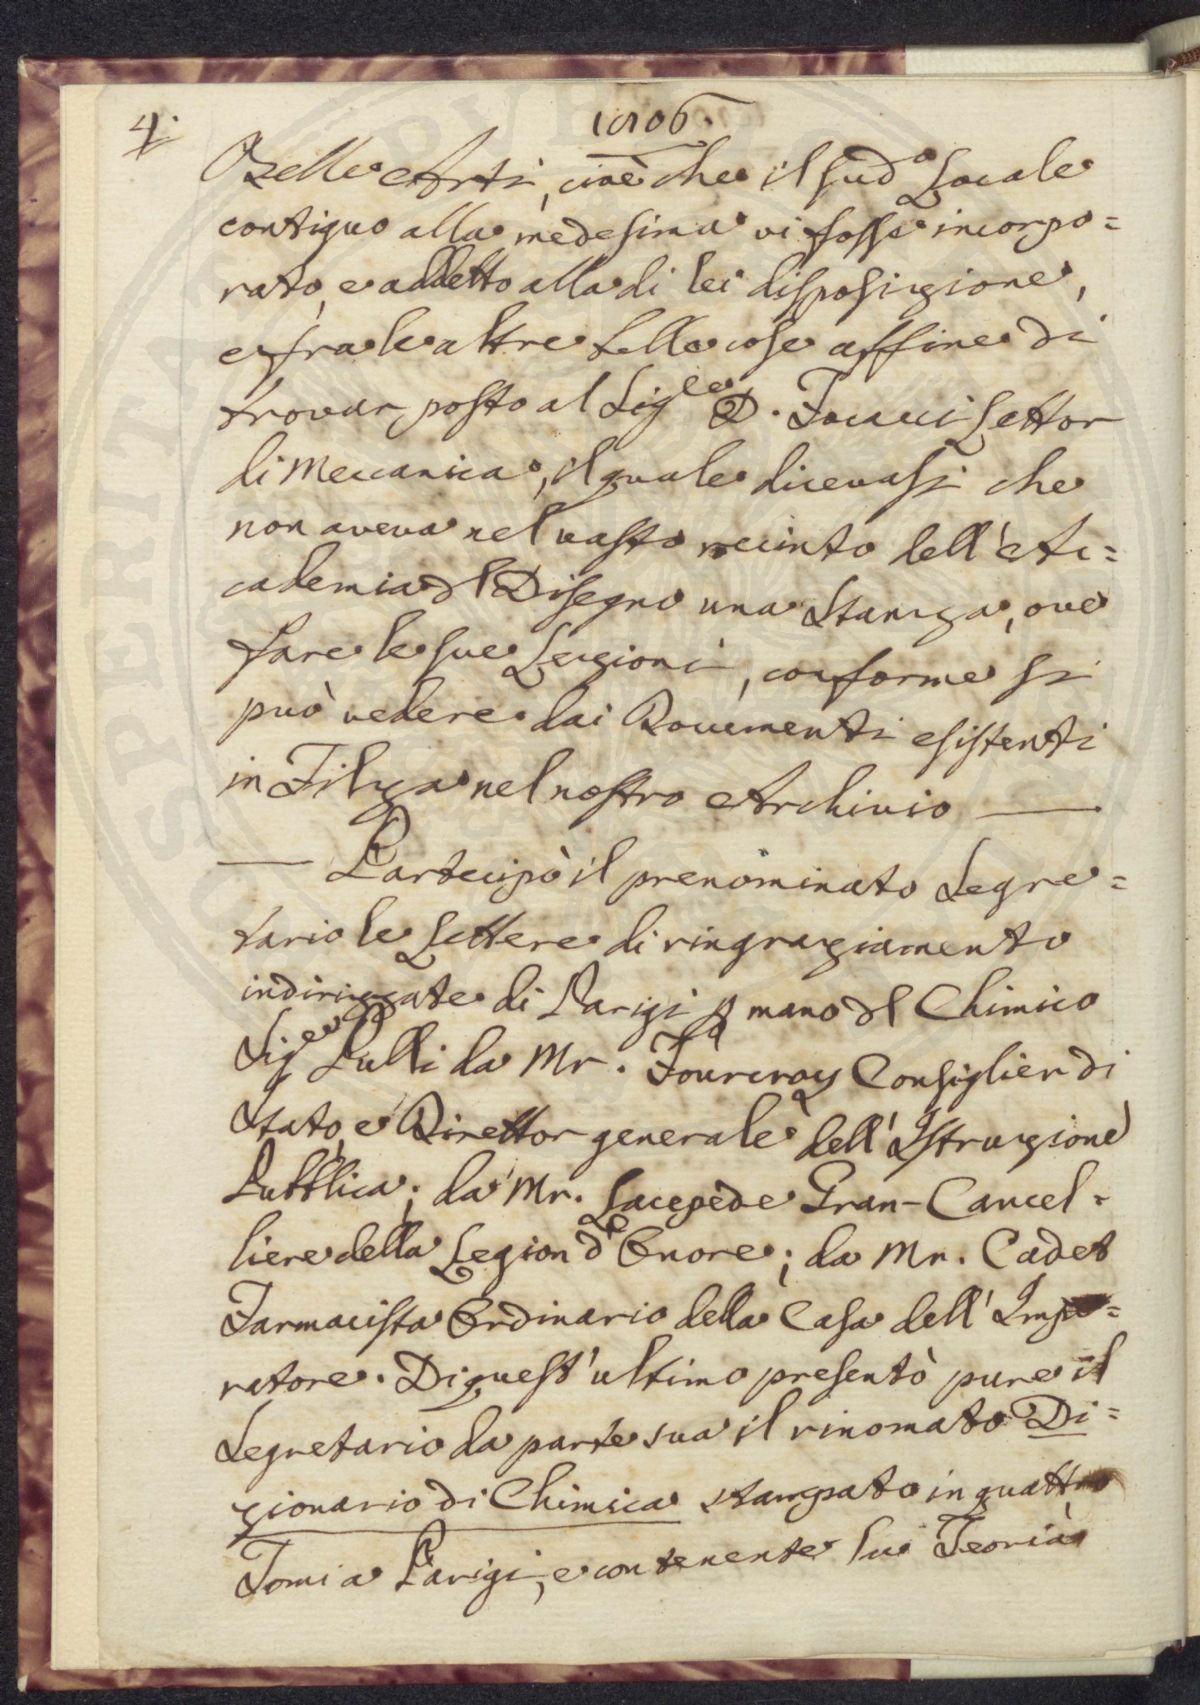 4.
1806.
Belle Arti, cioè che il sud.° Locale
contiguo alla medesima vi fosse incorpo=
rato, e addetto alla di lei disposizione,
e fra le altre belle cose affine di
trovar posto al Sig.re D. Focacci Lettor
di Meccanica, il quale dicevasi che
non aveva nel vasto recinto dell'Ac=
cademia del Disegno una Stanza, ove
fare le sue Lezioni, conforme si
può vedere dai Documenti esistenti
in Filza nel nostro Archivio —
— Partecipò il prenominato Segre=
tario le Lettere di ringraziamento
indirizzate di Parigi p mano del Chimico
Sig.re Pulli da Mr. Fourcroy Consiglier di
Stato, e Direttor generale dell'Istruzione
Pubblica; da Mr. Lacepède Gran-Cancel=
liere della Legion d'Onore; da Mr. Cadet
Farmacista Ordinario della Casa dell'Impe=
ratore. Di quest'ultimo presentò pure il
Segretario da parte sua il rinomato Di=
zionario di Chimica stampato in quattro
Tomi a Parigi, e contenente la Teoria